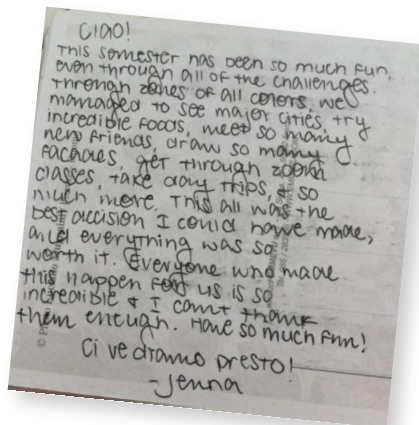 CIAO!
This semester has been so much fun,
even through all of the challenges.
Through zones of all colors, we
managed to see major cities, try
incredible foods, meet so many
new friends, draw so many
facades, get through zoom
classes, take day trips, & so
much more. This all was the
best decision I could have made,
and everything was so
worth it. Everyone who made
this happen for us is so
incredible & I can't thank
them enough. Have so much fun!
Ci vediamo presto!
-Jenna